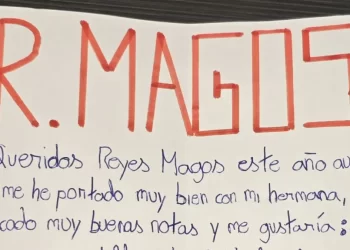 R. MAGOS
Queridos Reyes Magos este año
me he portado muy bien con mi hermana,
cado muy buenas notas y me gustaría: